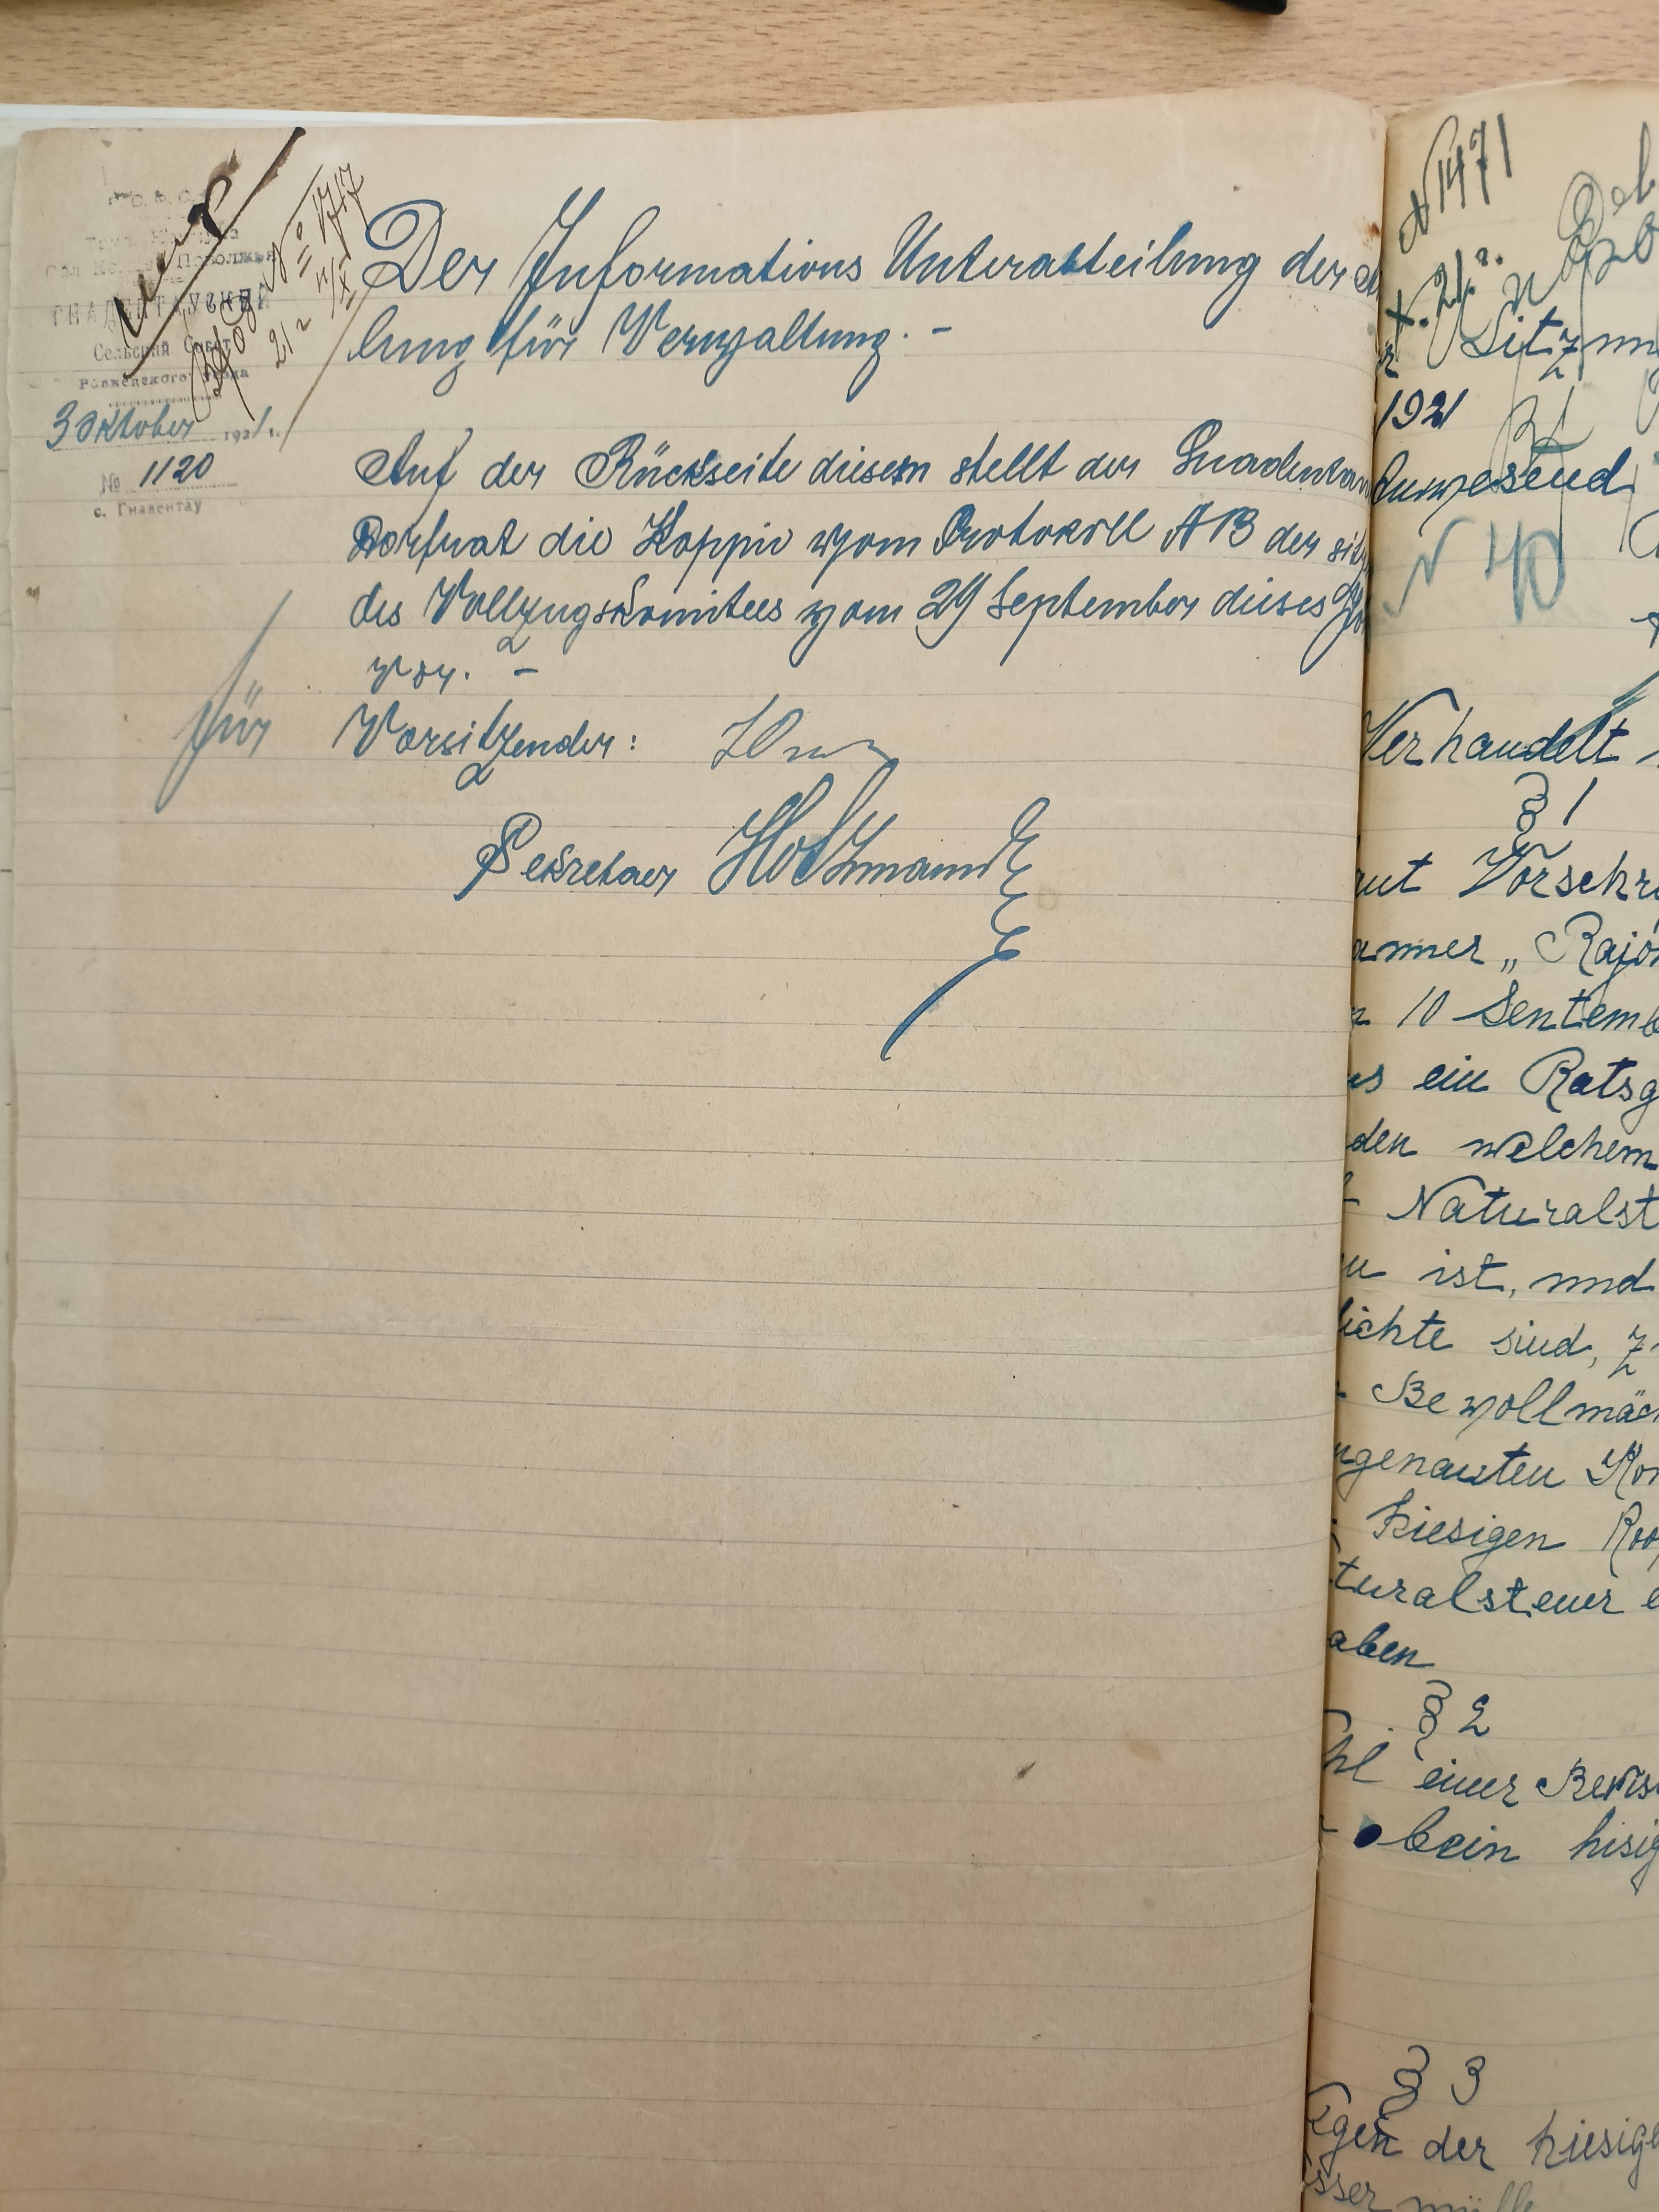 Р. С. Ф. С. Р.
Обл. Немцев Поволжья
ГНАДЕНТАУСКИЙ
Сельский Совет
Ровненского уезда
3 Oktober 1921 г.
№ 1120
с. Гнадентау
№ 1717
21 г
Der Informations Unterabteilung der
lung für Verwaltung. -
Auf der Rückseite diesem stellt der Gnadentau
Dorfrat die Koppie vom Protokoll der sitz
des Vollzugskomitees vom 29 September dieses
vor. -
für Vorsitzender:
Sekretaer Holzmann
N 1471
X. 21 г.
Sitzun
1921
Anwesend
N 40
Verhandelt
§ 1
aut Vorschri
ammer „ Rajon
n 10 Sentemb
us ein Ratsg
den welchem
Naturalst
zu ist, und
lichte sind, z
Bevollmäch
ngenanten Kom
hiesigen Koo
turalsteuer e
aben
§ 2
hl einer Revis
bein hisig
§ 3
egen der hiesige
sser mülle